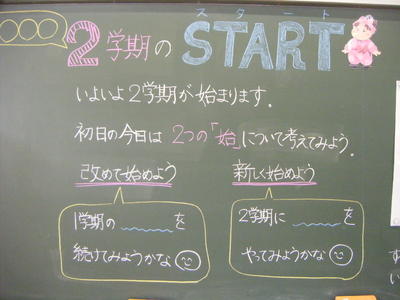 ○○○
スタート
2学期の START
いよいよ2学期が始まります.
初日の今日は 2つの「始」について考えてみよう.
改めて始めよう
新しく始めよう
1学期の を
続けてみようかな
2学期に を
やってみようかな
す
い